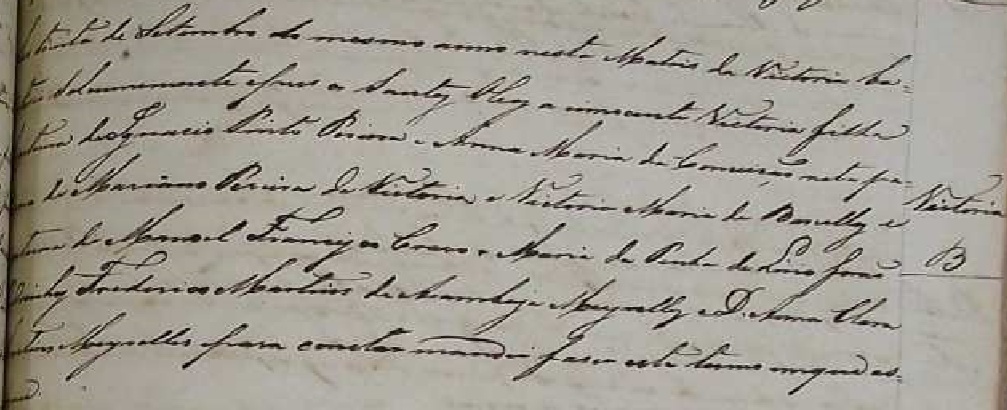 trinta de Setembro do mesmo anno nesta Matris da Victoria ba-
solemnemente e pus os Santos Oleos a innocente Victoria filha
de Ignacio Pinto Pereira e Anna Maria da Conceiçaõ neta pa-
de Mariano Pereira da Victoria e Victoria Maria de e
de Manoel Francisco e Maria da foraõ
Frederico Martins de Meyrelles e D. Anna Clara
Meyrelles e para constar mandei faser este termo em que as-
Victoria
B